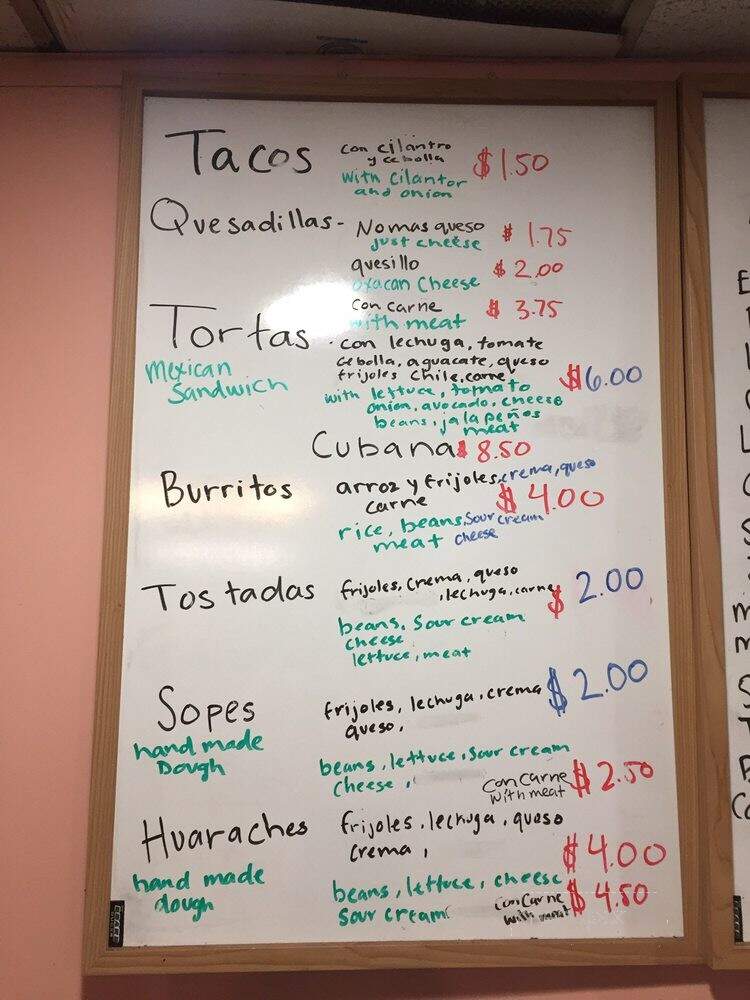 Tacos con cilantro $1.50
y cebolla
with cilantor
and onion
Quesadillas - Nomas queso $1.75
just cheese
quesillo $2.00
oxacan Cheese
con carne $3.75
with meat
Tortas · con lechuga, tomate
Mexican Sandwich
cebolla, aguacate, queso
frijoles Chile, carne $6.00
with lettuce, tomato
onion, avocado, cheese
beans, jalapeños
meat
Cubana $8.50
Burritos arroz y frijoles, crema, queso
carne $4.00
rice, beans, Sour cream
meat cheese
Tostadas frijoles, crema, queso
, lechuga, carne $2.00
beans, Sour cream
cheese
lettuce, meat
Sopes frijoles, lechuga, crema $2.00
queso,
hand made
Dough
beans, lettuce, Sour cream
Cheese,
con carne $2.50
with meat
Huaraches frijoles, lechuga, queso
crema, $4.00
hand made
dough
beans, lettuce, cheese
Sour cream
con carne $4.50
with meat